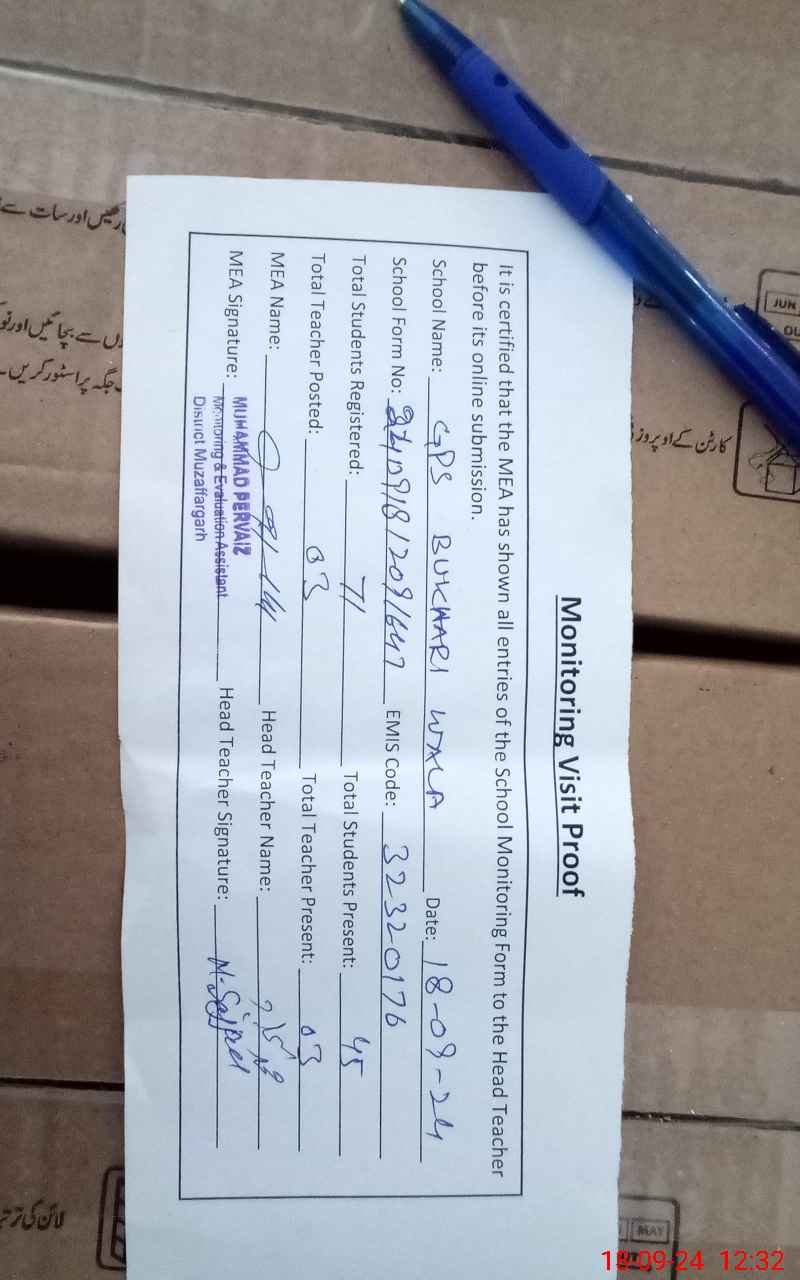 Monitoring Visit Proof
It is certified that the MEA has shown all entries of the School Monitoring Form to the Head Teacher
before its online submission.
School Name: GPS BUKHARI WALA Date: 18-09-24
School Form No: EMIS Code: 32320176
Total Students Registered: 71 Total Students Present: 45
Total Teacher Posted: 03 Total Teacher Present: 03
MEA Name: Head Teacher Name:
MEA Signature: Head Teacher Signature: M. Sajjad
MUHAMMAD PERVAIZ
Monitoring & Evaluation Assistant
District Muzaffargarh
JUN
MAY
کارٹن کے اوپر وز
18-09-24 12:32